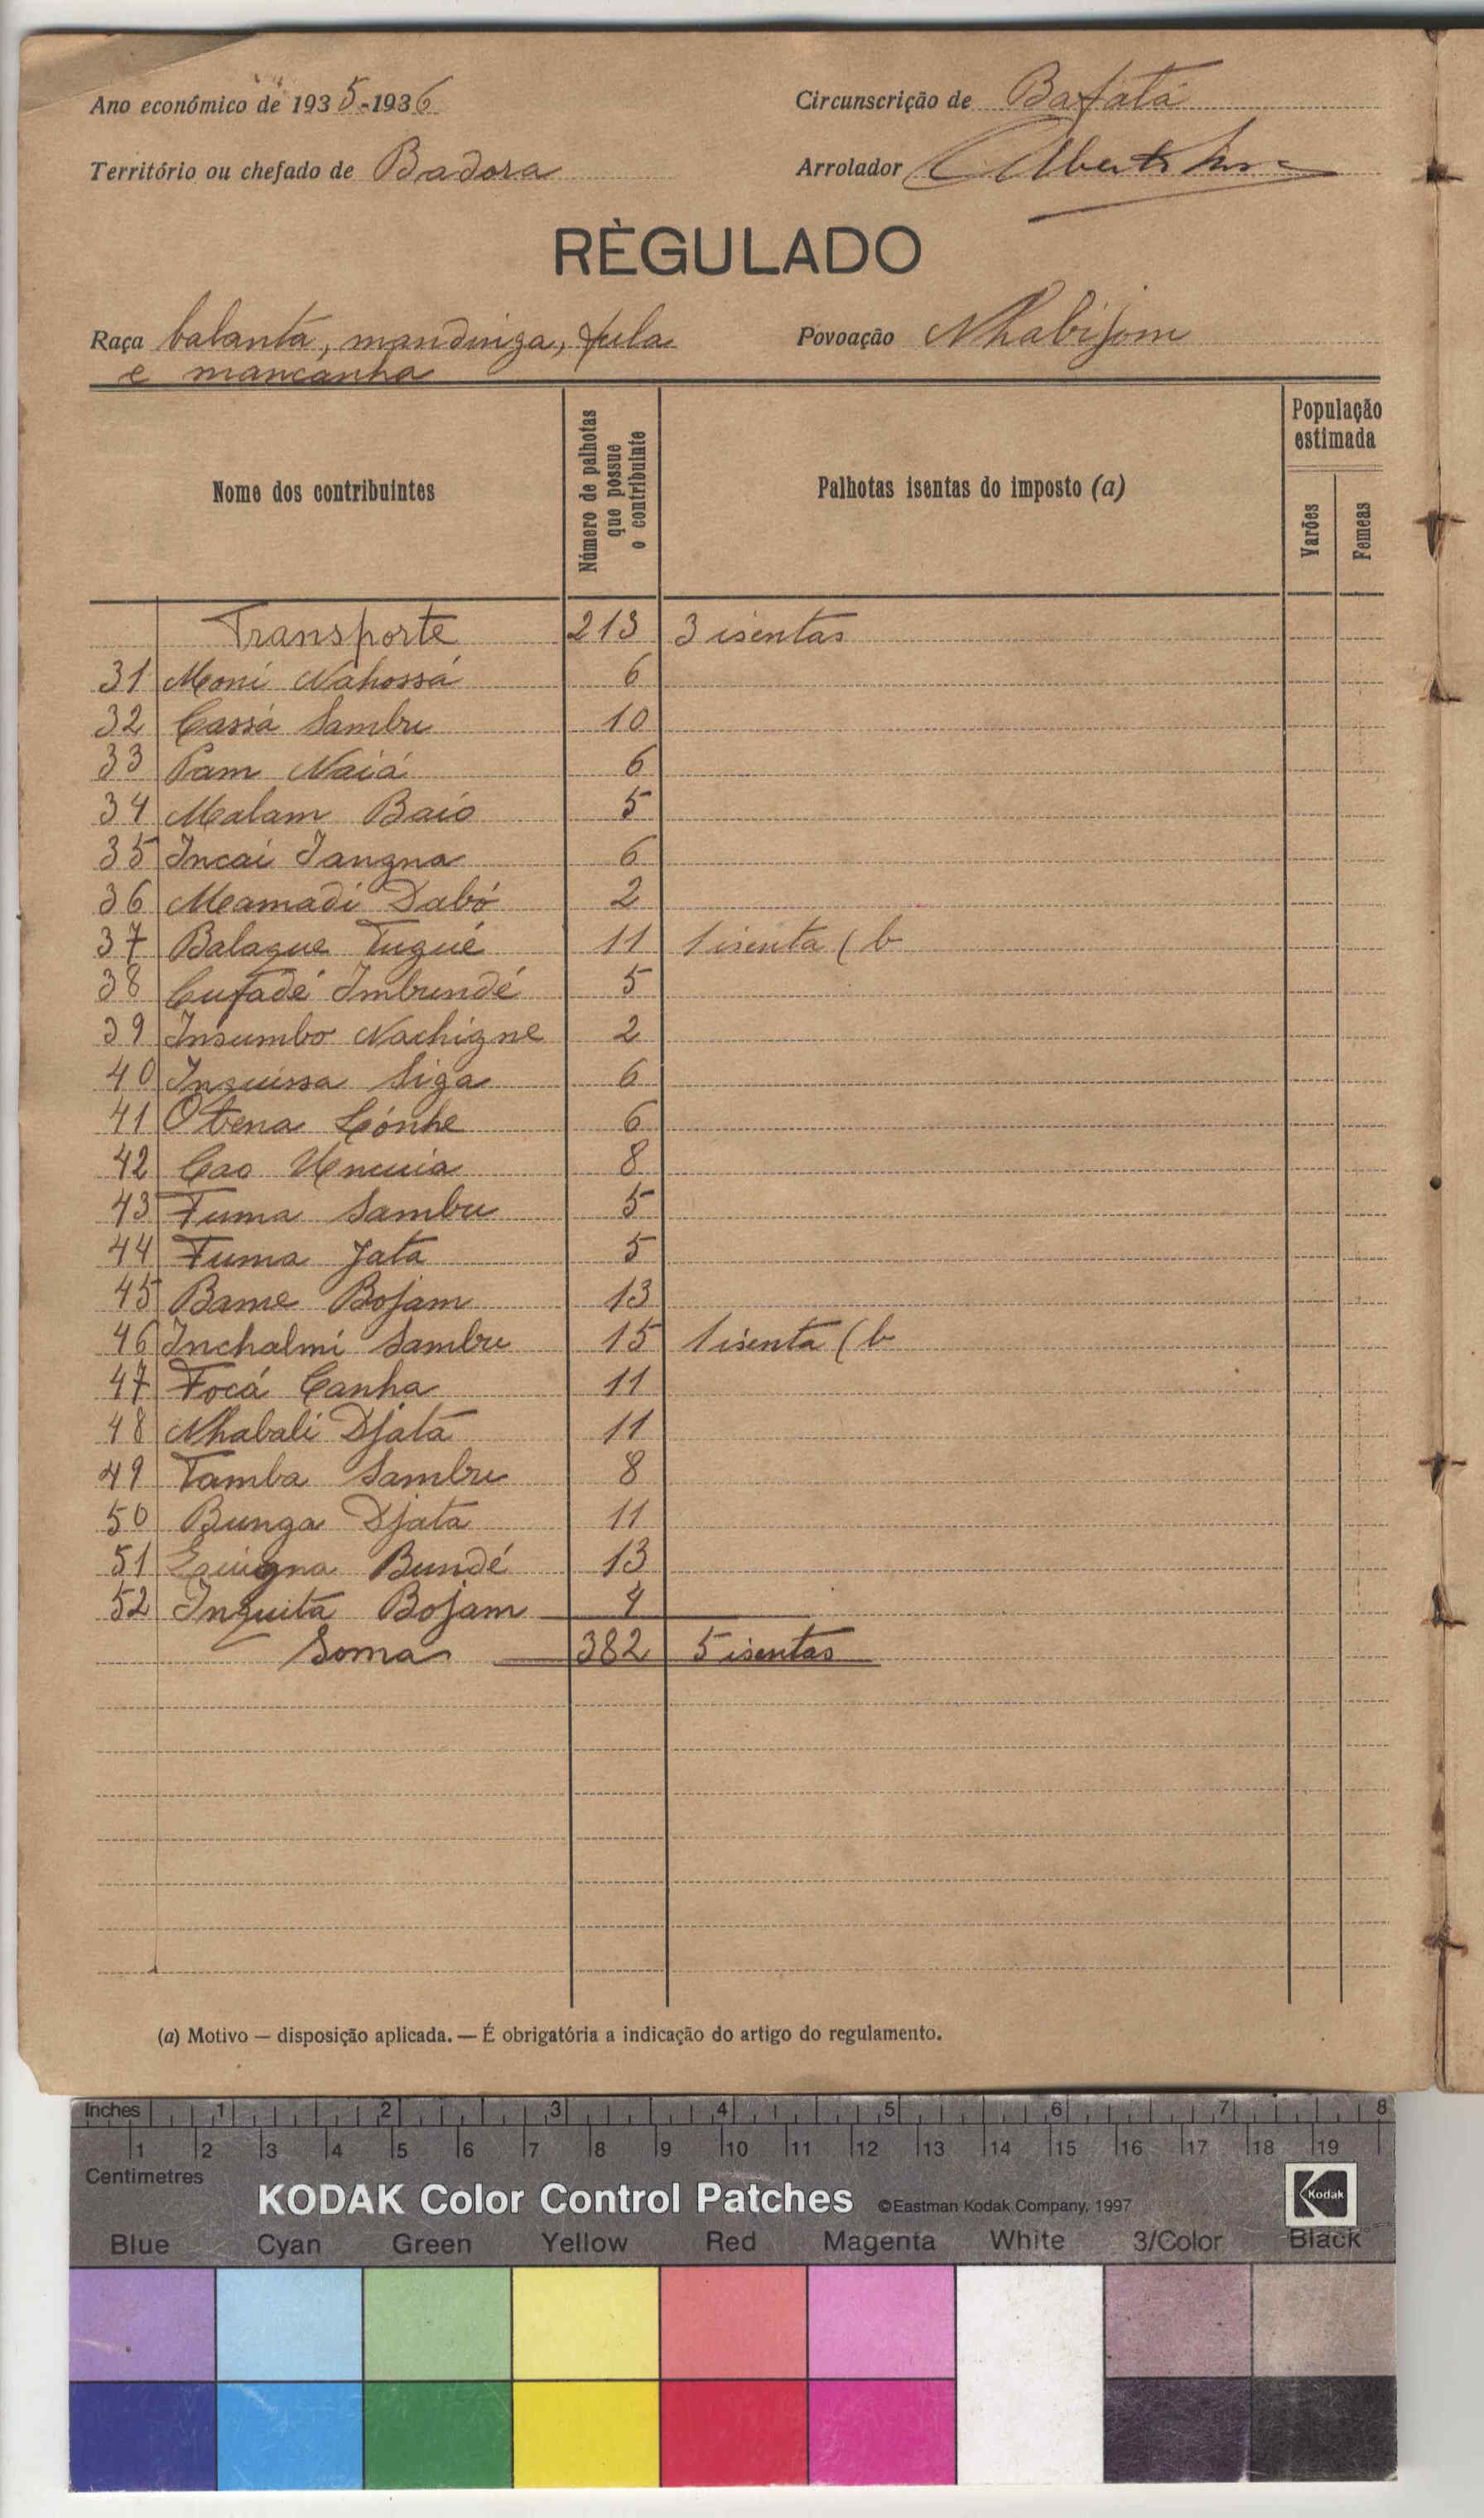 Ano económico de 1935-1936
Circunscrição de Bafatá
Território ou chefado de Badora
Arrolador Alberto
RÈGULADO
Raça balanta, mandinga, fula
e mancanha
Povoação Nhabijom
Nome dos contribuintes
Número de palhotas que possue o contribuinte
Palhotas isentas do imposto (a)
População estimada
Varões
Femeas
Transporte 213 3 isentas
31 Moni Nahossá 6
32 Cassá Sambu 10
33 Pam Naiá 6
34 Malam Baio 5
35 Incai Tangna 6
36 Mamadi Dabó 2
37 Balague Tugué 11 1 isenta (b
38 Cufadé Imbundé 5
39 Insumbo Nachigne 2
40 Inquissa Siga 6
41 Otena Lónhe 6
42 Cao 8
43 Fuma Sambu 5
44 Fuma Jata 5
45 Bame Bojam 13
46 Inchalmi Sambu 15 1 isenta (b
47 Focá Canha 11
48 Nhabali Djata 11
49 Tamba Sambu 8
50 Bunga Djata 11
51 Bundé 13
52 Inquita Bojam 4
Soma 382 5 isentas
(a) Motivo — disposição aplicada. — É obrigatória a indicação do artigo do regulamento.
Inches 1 2 3 4 5 6 7 8
1 2 3 4 5 6 7 8 9 10 11 12 13 14 15 16 17 18 19
Centimetres
KODAK Color Control Patches ©Eastman Kodak Company, 1997 Kodak
Blue Cyan Green Yellow Red Magenta White 3/Color Black